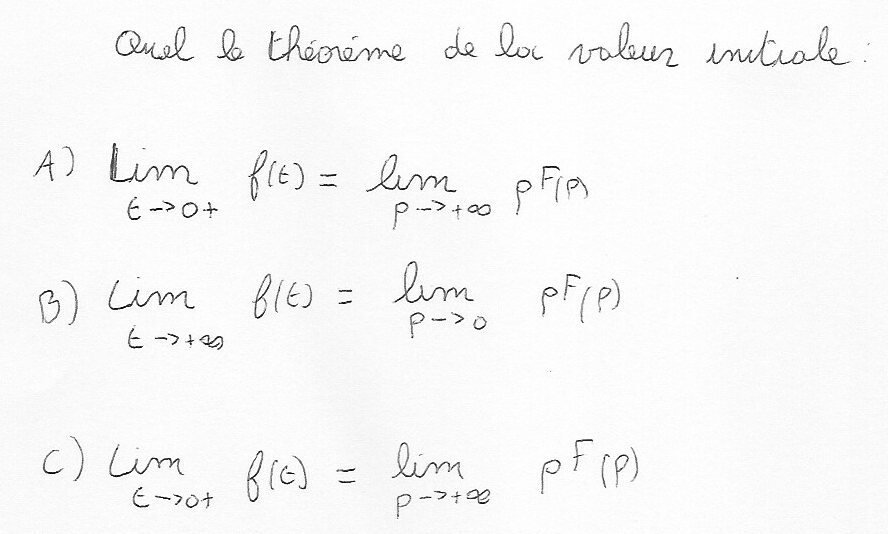 Quel le théorème de la valeur initiale :
A) Lim f(t) = lim pF(p)
t->0+ p->+∞
B) Lim f(t) = lim pF(p)
t->+∞ p->0
C) Lim f(t) = lim pF(p)
t->0+ p->+∞